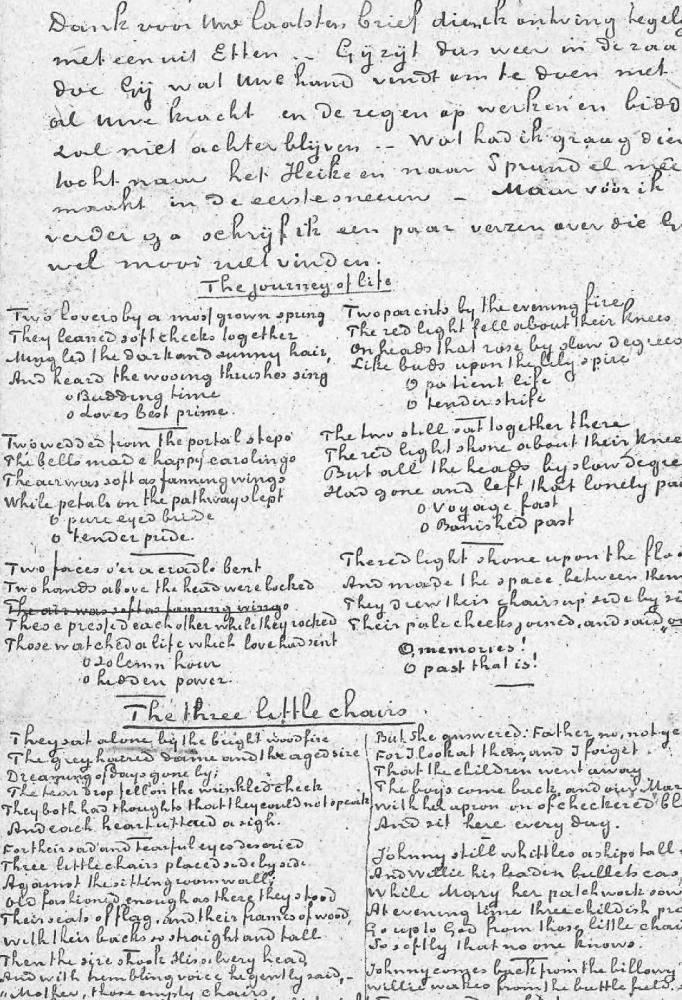 Dank voor Uw laatsten brief dien ik ontving tegel
met een uit Etten -- Gij zijt dus weer in de zaa
doe Gij wat Uwe hand vindt om te doen met
al Uwe kracht en de zegen op werken en bidd
zal niet achterblijven -- Wat had ik graag dien
tocht naar het Heike en naar Sprundel mee
maakt in de eerste sneeuw - Maar vóór ik
verder ga schrijf ik een paar verzen over die
wel mooi zult vinden.
The journey of life
Two lovers by a moss grown spring
They leaned soft cheeks together
Mingled the dark and sunny hair,
And heard the wooing thrushes sing
o Budding time
o Loves best prime.
Two wedded from the portal steps
The bells made happy carolings
The air was soft as fanning wings
While petals on the pathway slept
O pure eyed bride
O tender pride.
Two faces o'er a cradle bent
Two hands above the head were locked
The air was soft as fanning wings
These pressed each other while they rocked
Those watched a life which love had sent
O solemn hour
O hidden power.
Two parents by the evening fire
The red light fell about their knees
On heads that rose by slow degrees
Like buds upon the lily spire
O patient life
O tender strife
The two still sat together there
The red light shone about their knee
But all the heads by slow degre
Had gone and left that lonely pa
O Voyage fast
O Banished past
The red light shone upon the floo
And made the space between them
They drew their chairs up side by si
Their pale cheeks joined, and said
O memories!
O past that is!
The three little chairs
They sat alone by the bright woodfire
The grey haired dame and the aged sire
Dreaming of days gone by;
The tear drop fell on the wrinkled cheek
They both had thoughts that they could not speak
And each heart uttered a sigh.
For their sad and tearful eyes descried
Three little chairs placed side by side
Against the sitting room wall;
Old fashioned enough as there they stood
Their seats of flag, and their frames of wood,
With their backs so straight and tall
Then the sire shook His silvery head,
And with trembling voice he gently said, -
"Mother, those empty chairs
But She answered: Father no, not ye
For I look at them, and I forget
That the children went away
The boys come back, and our Mar
With her apron on of checkered bl
And sit here every day.
Johnny still whittles a ships tall
And Willie his leaden bullets cas
While Mary her patchwork sew
At evening time three childish pra
Go up to God from those little chai
So softly that no one knows.
Johnny comes back from the billowy
Willie wakes from the battle field